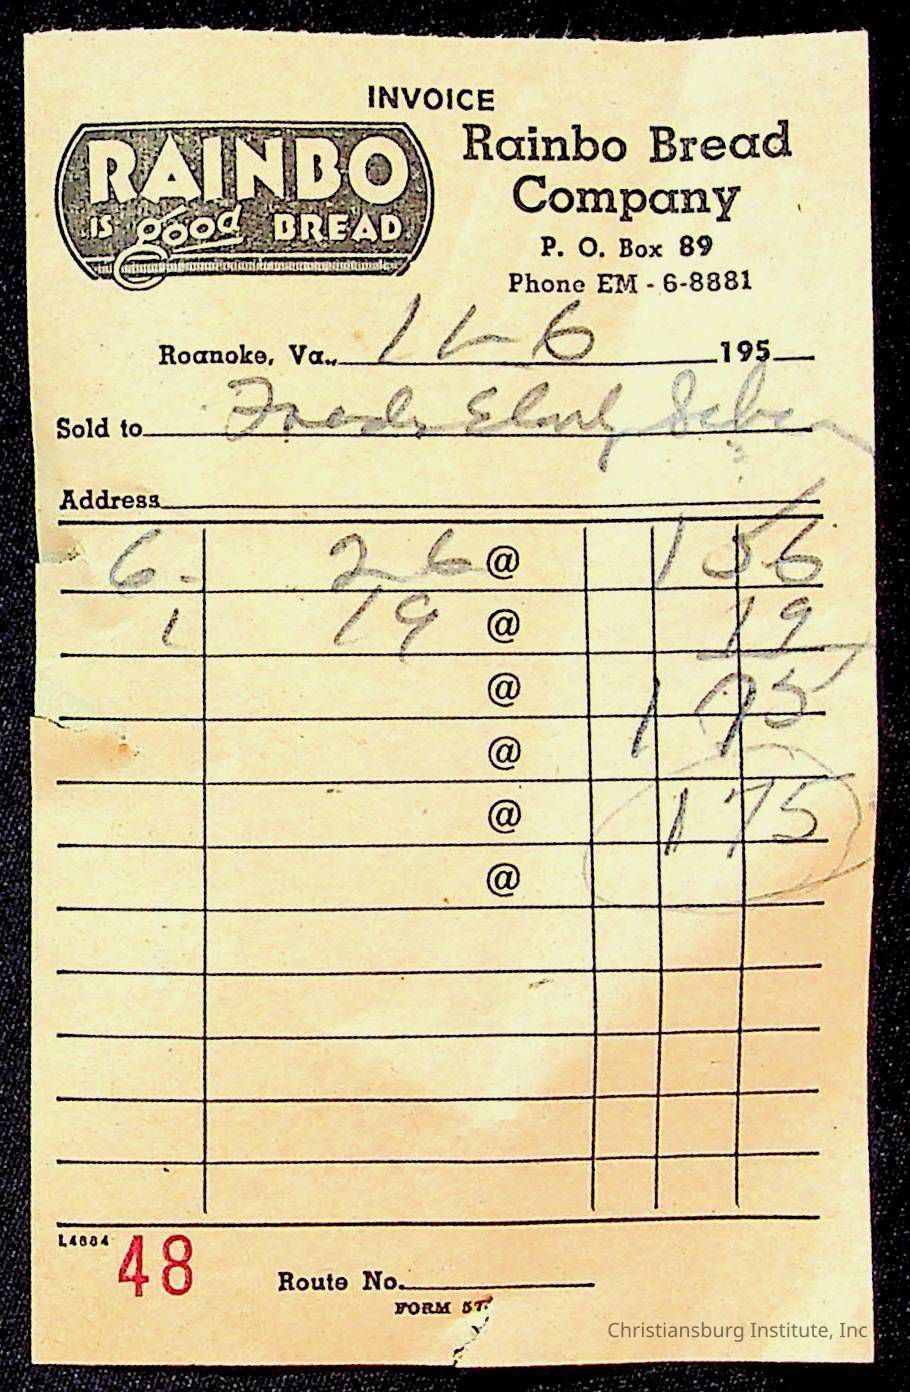 INVOICE
RAINBO
IS good BREAD
Rainbo Bread
Company
P. O. Box 89
Phone EM - 6-8881
Roanoke, Va., 1 6 195
Sold to
Address
6 26 @ 1 56
1 19 @ 19
@ 1 75
@
@ 1 75
@
L4884
48
Route No.
FORM 57
Christiansburg Institute, Inc